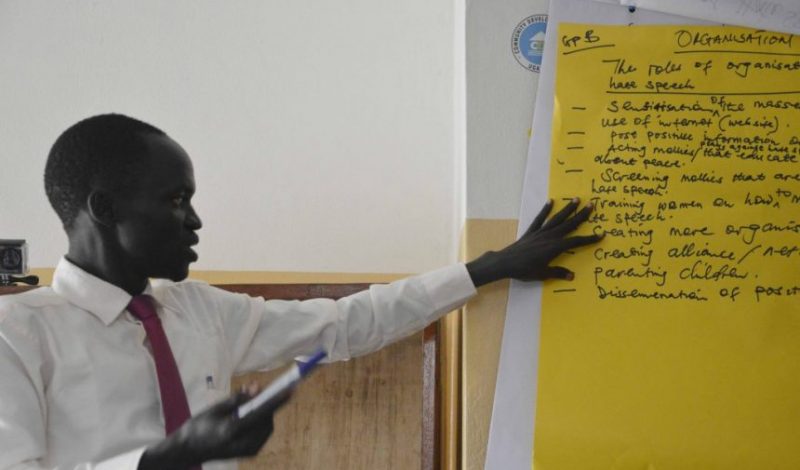 COMMUNITY DEVELOP
UGA
GP B
ORGANISATION
The roles of organisat
hate speech
— Sensitisation of the masses
use of internet (website).
— post positive information o
— Acting movies/ plays against hate s
that educate
about peace.
— Screening movies that are
hate speech.
— Training women on how to
hate speech.
Creating more organis
— Creating alliance/
parenting children.
— Dissemenation of posit